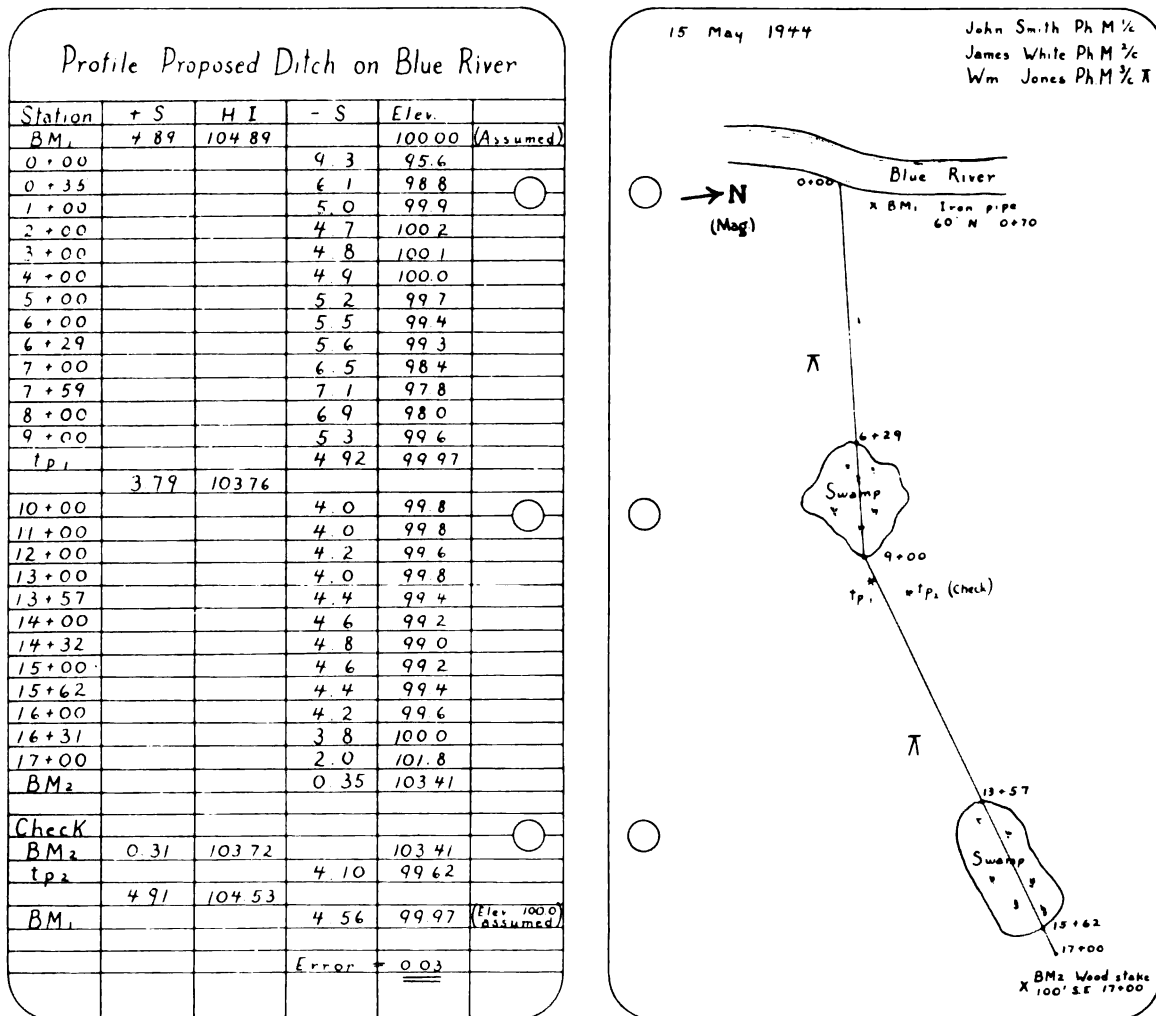 Profile Proposed Ditch on Blue River
Station + S H I - S Elev.
BM₁ 4 89 104 89 100 00 (Assumed)
0 + 00 9. 3 95.6
0 + 35 6 1 98 8
1 + 00 5. 0 99. 9
2 + 00 4 7 100 2
3 + 00 4 8 100 1
4 + 00 4 9 100.0
5 + 00 5 2 99 7
6 + 00 5 5 99 4
6 + 29 5 6 99 3
7 + 00 6 5 98 4
7 + 59 7 1 97 8
8 + 00 6 9 98 0
9 + 00 5 3 99 6
tp₁ 4 92 99 97
3 79 103 76
10 + 00 4. 0 99. 8
11 + 00 4. 0 99 8
12 + 00 4. 2 99 6
13 + 00 4. 0 99. 8
13 + 57 4. 4 99 4
14 + 00 4 6 99 2
14 + 32 4. 8 99 0
15 + 00 4 6 99 2
15 + 62 4. 4 99 4
16 + 00 4. 2 99 6
16 + 31 3 8 100 0
17 + 00 2. 0 101. 8
BM₂ 0. 35 103 41
Check
BM₂ 0. 31 103 72 103 41
tp₂ 4. 10 99 62
4 91 104. 53
BM₁ 4 56 99 97 (Elev 100.0 assumed)
Error = 0 03
15 May 1944
John Smith Ph M 1/c
James White Ph M 2/c
Wm Jones Ph M 3/c ⊼
Blue River
0+00
N
(Mag.)
x BM₁ Iron pipe
60' N 0+70
⊼
6 + 29
Swamp
9 + 00
tp₁ tp₂ (Check)
⊼
13 + 57
Swamp
15 + 62
17+00
X BM₂ Wood stake
100' S.E 17+00